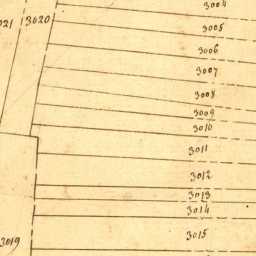 3004
021 3020
3005
3006
3007
3008
3009
3010
3011
3012
3013
3014
3015
3019